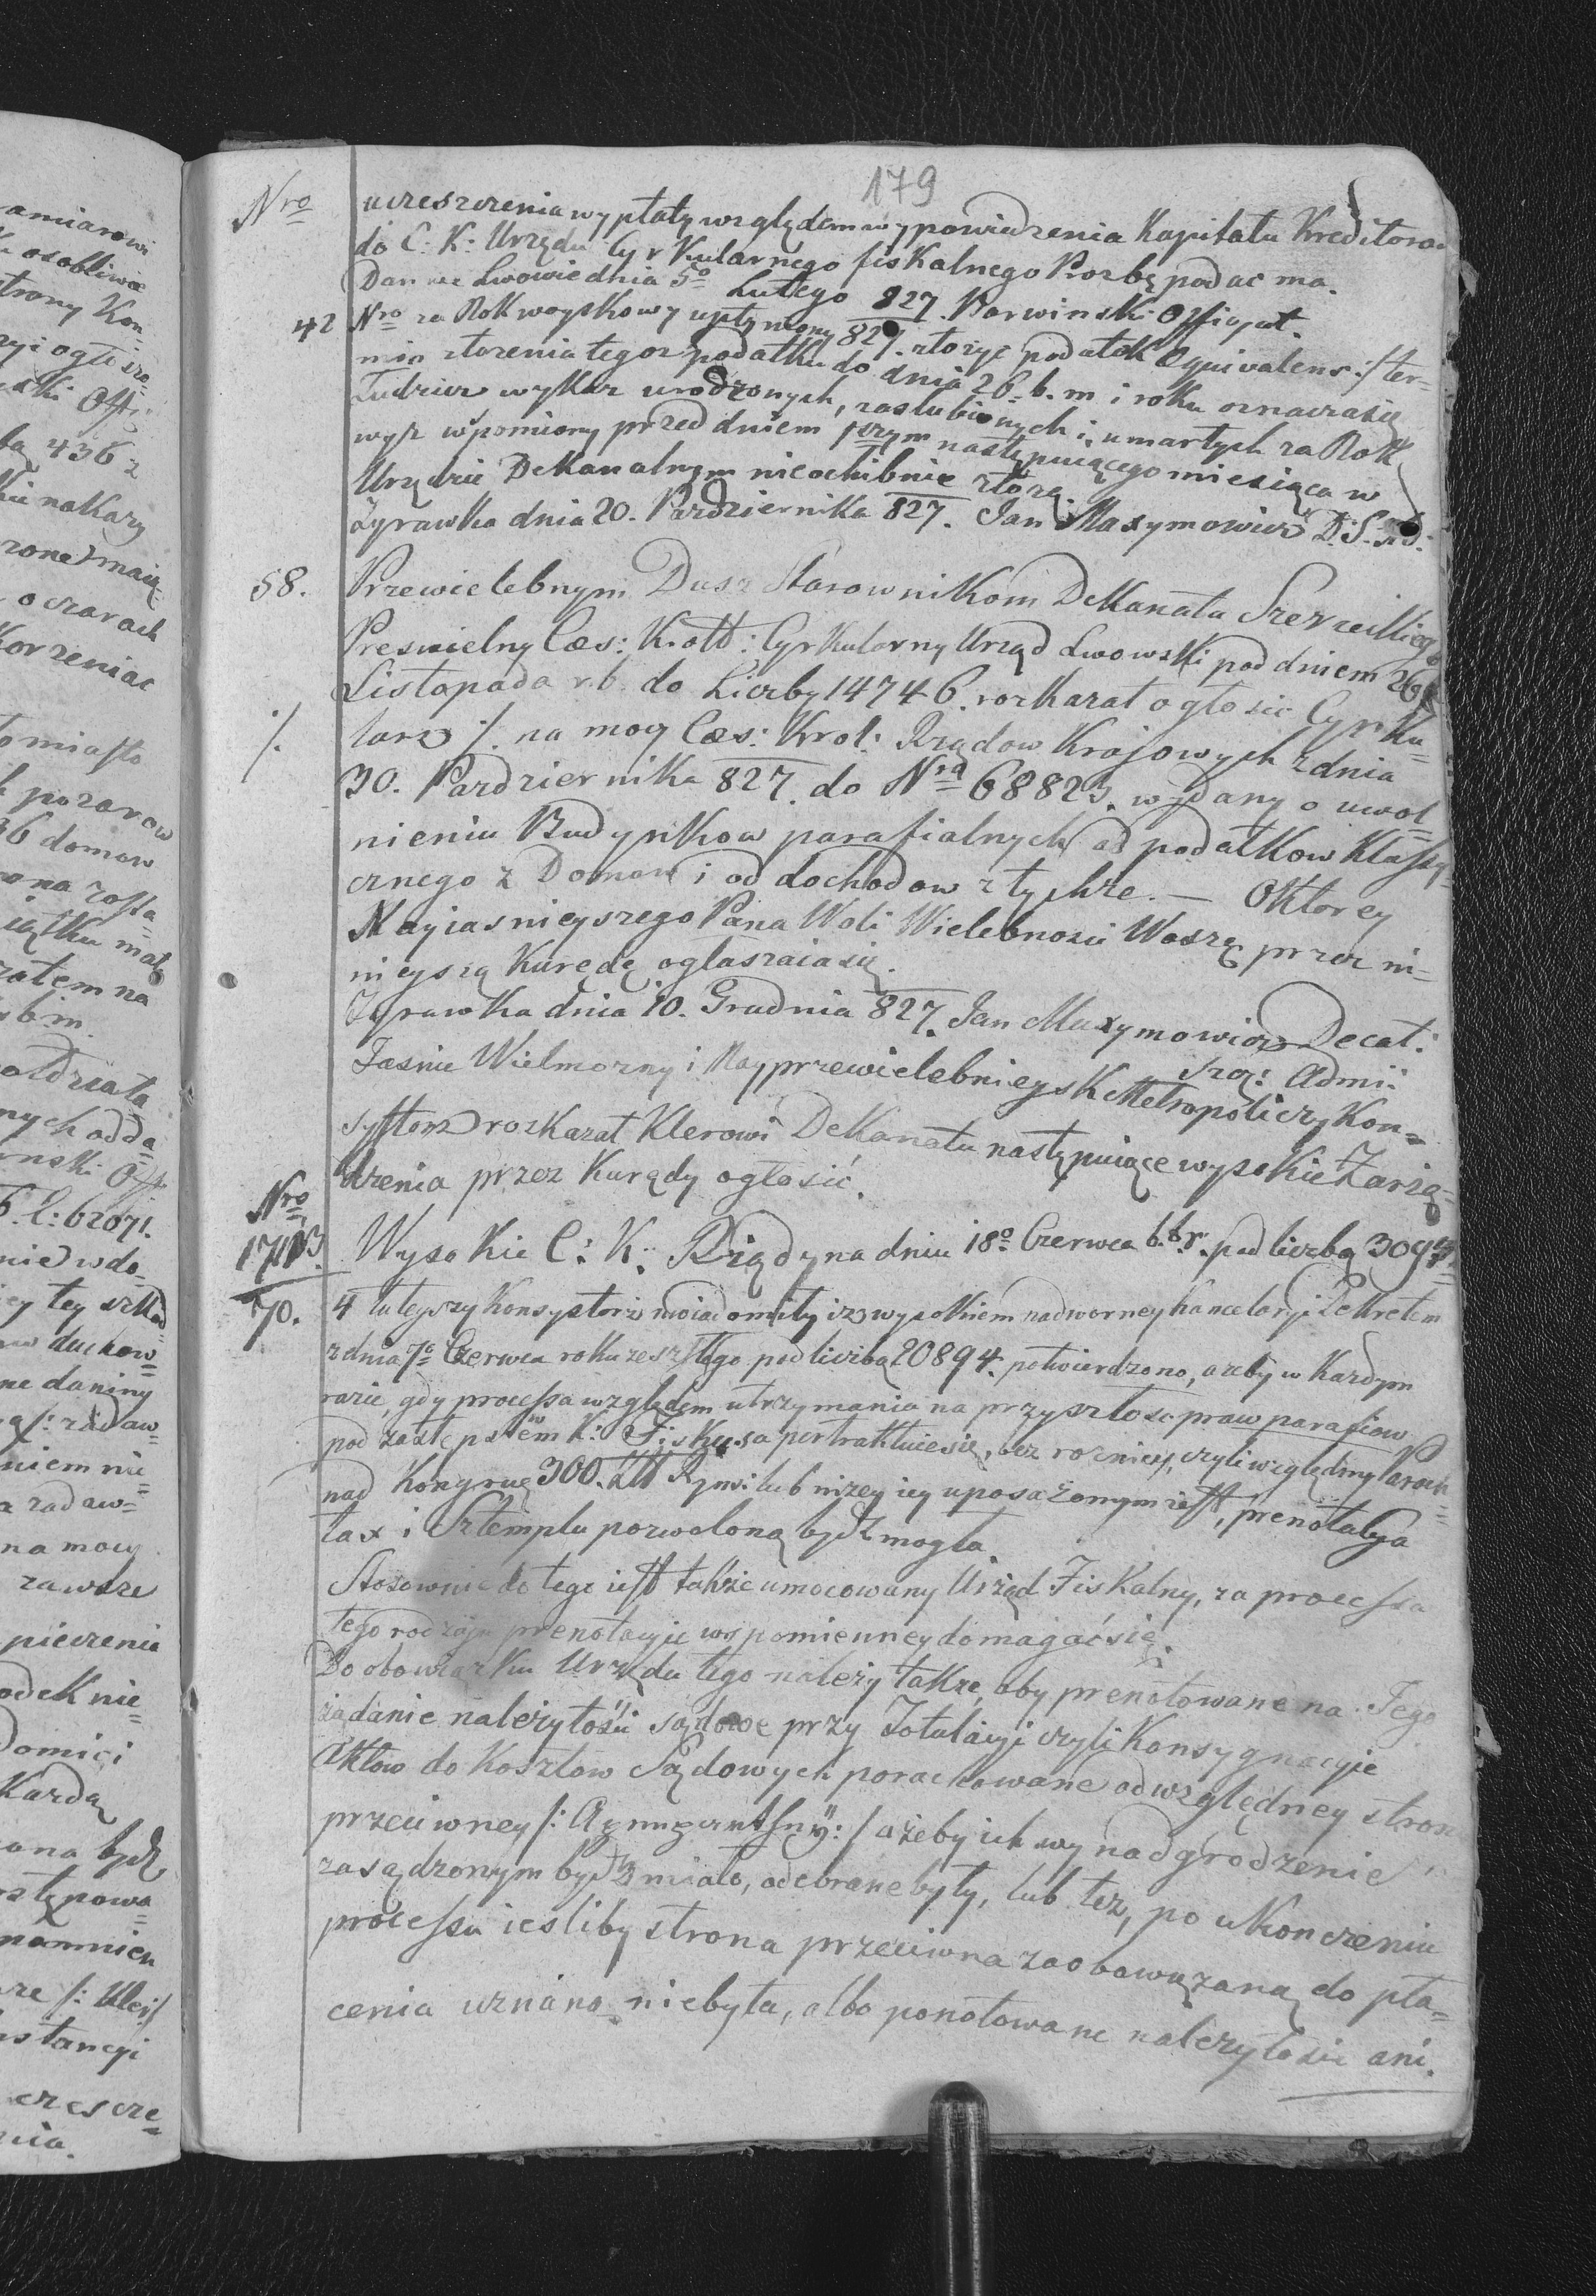 179
Nro
uczeszczenia wypłaty względem wypowiedzenia Kapitału Kreditora
do C: K: Urzędu Cyrkularnego fiskalnego Prozbę podac ma.
Dan we Lwowie dnia 5o Lutego 827. Barwinski Offiyał.
42 Nro za Rok woyskowy upłyniony 827. złożyc podatek Equivalens :/ ter=
min złożenia tegoz podatku do dnia 26. b. m i roku oznacza się
Tudzież wykaz urodzonych, zaslubionych i umarłych za Rok
wyz wspomiony przed dniem 1szym następuiącego miesiąca w
Urzędzie Dekanalnym nieochibnie złożą.
Zyrawka dnia 20. Pazdziernika 827. Jan Maxymowicz D. S. AD:
58. Przewielebnym Dusz Starownikom Dekanatu Szerzeckiego
Preswielny Cæs: Krol: Cyrkularny Urząd Lwowski pod dniem 26
Listopada r.b. do Liczby 14746. rozkazał ogłosic Cyrku=
/. larz /. na mocy Cæs: Krol: Rządow Krajowych z dnia
30. Pazdziernika 827. do Nra 68823. wydany o uwol=
nieniu Budynkow parafialnych od podatkow Klassy=
cznego z Domow i od dochodow z tychze. — O Ktorey
Nayiasnieyszego Pana Woli Wielebnosci Waszę przez ni=
nieyszą Kurędę ogłaszaia się.
Zyrawka dnia 10. Grudnia 827. Jan Maxymowicz Decat:
Szcz: Admi:
Jasnie Wielmozny i Nayprzewielebnieysk Metropoliczy Kon=
systorz rozkazał Klerowi Dekanatu następuiące wysokie Zarzą=
dzenia przez Kurędy ogłosić.
Nro
1713.
70.
Wysokie C: K: Rządy na dniu 18o Czerwca b. r. pod liczbą 3095
4 tuteyszy Konsystorż uwiadomiły iz wysokiem nadworney Kancelaryi Dekretem
z dnia 7o Czerwca roku zeszłego pod liczbą 20894. potwierdzono, azeby w Kazdym
razie, gdy processa względem utrzymania na przyszłosc praw parafiow
pod zastępstwem K: Fiskusa pertraktuie się, bez roznicy, czyli względny Paroch
nad Kongruę 300. Zł Rymi: lub nizey iey uposażonym iest, prenotacya
tax i Sztemplu pozwoloną bydz mogła
Stosownie do tego iest także umocowany Urząd Fiskalny, za processa
tego rodzaju prenotacyie wspomienney domagać się.
Do obowiązku Urzędu tego należy także, aby prenotowane na Tego
żądanie należytośći sądowe przy Totulacyi czyli Konsygnacyie
Aktow do Kosztow Sądowych porachowane od względney stron
przeciwney /: / ażeby ich wynadgrodzenie
zasądzonym bydz miało, odebrane były, lub też, po ukonczeniu
processu iesliby strona przeciwna za obowiązaną do pła=
cenia uznano niebyła, albo ponotowane należytosci ani.